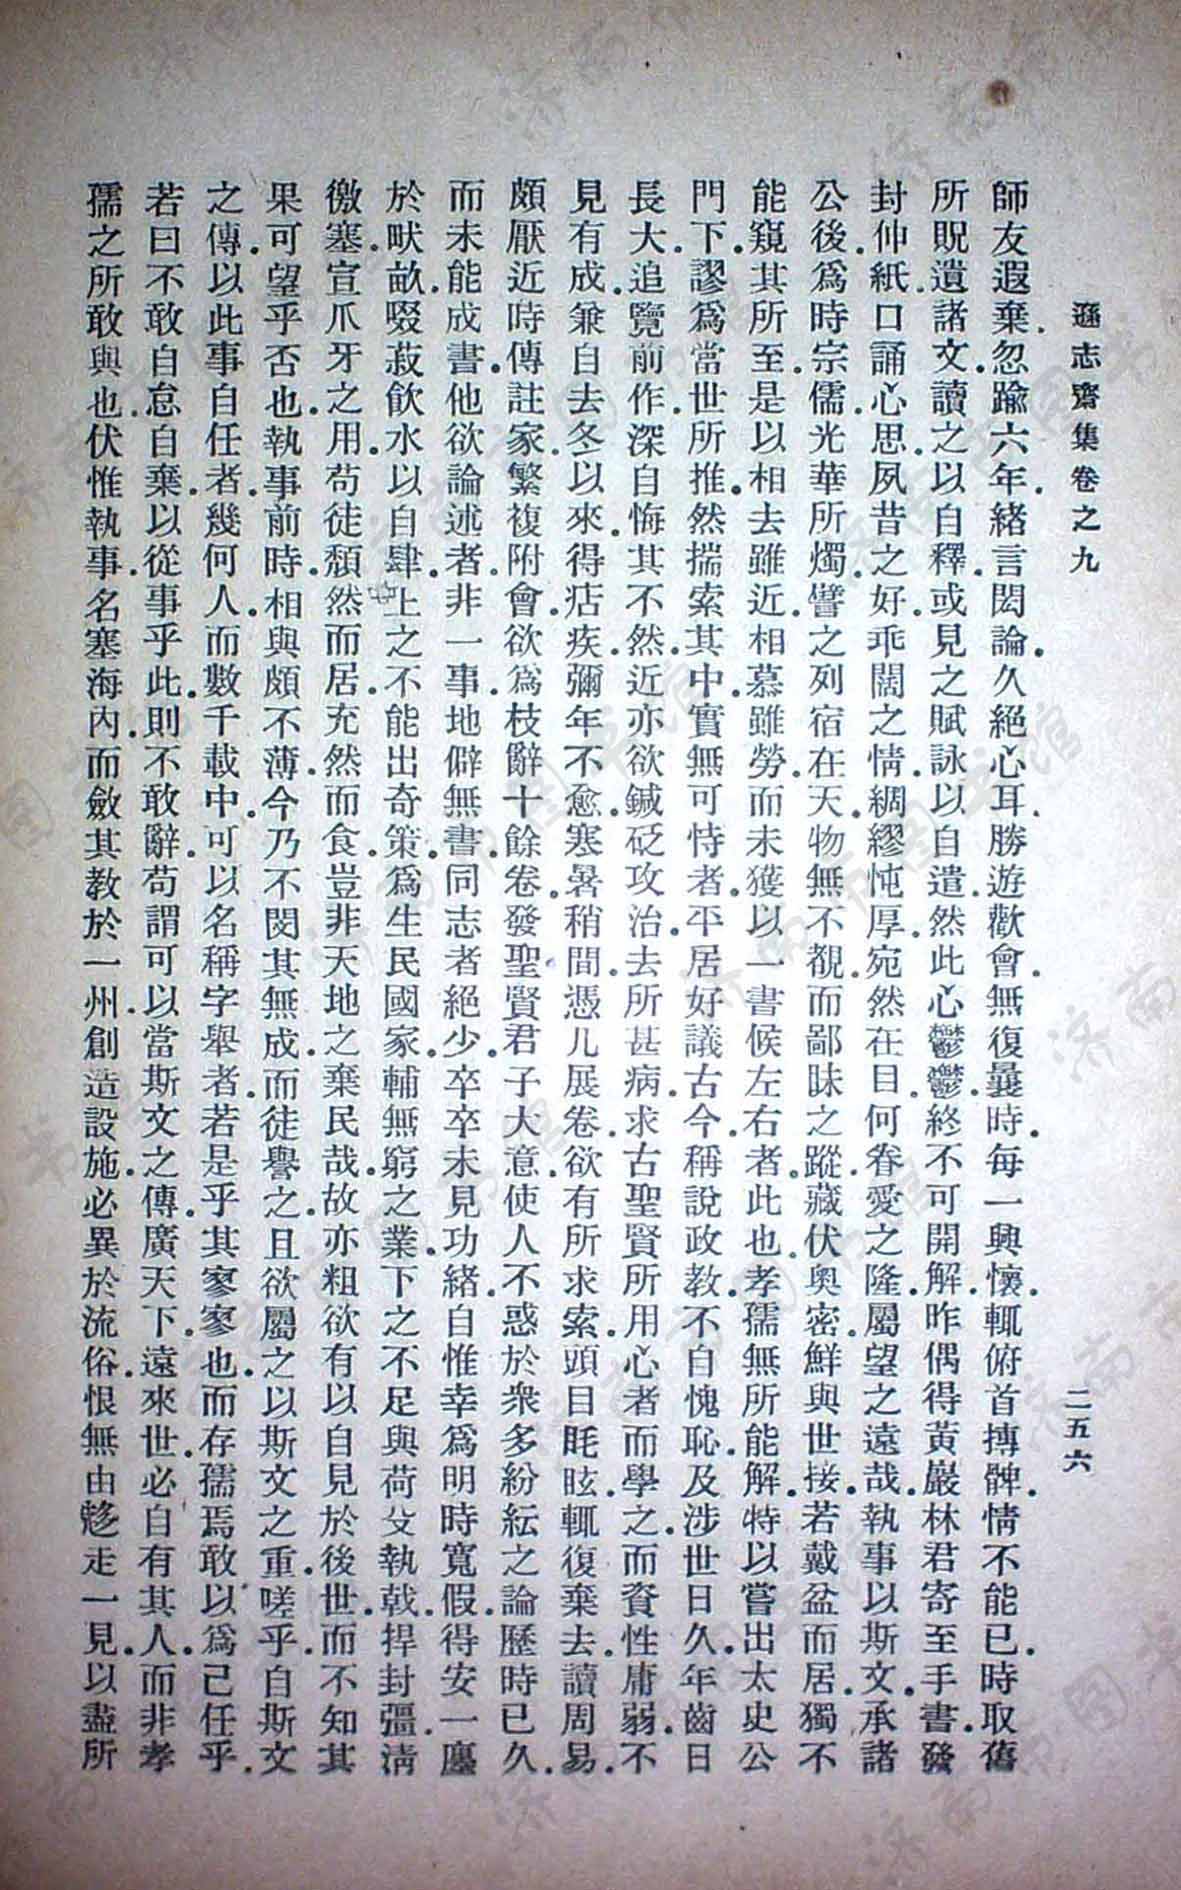 遜志齋集卷之九
二五六
師友遐棄．忽踰六年．緒言閎論．久絕心耳．勝遊歡會．無復曩時．每一興懷．輒俯首搏髀．情不能已．時取舊
所貺遺諸文．讀之以自釋．或見之賦詠以自遣．然此心鬱鬱．終不可開解．昨偶得黃巖林君寄至手書．發
封伸紙．口誦心思．夙昔之好．乖闊之情．綢繆忳厚．宛然在目．何眷愛之隆．屬望之遠哉．執事以斯文．承諸
公後．爲時宗儒．光華所燭．譬之列宿在天．物無不覩．而鄙昧之蹤．藏伏奧密．鮮與世接．若戴盆而居．獨不
能窺其所至．是以相去雖近．相慕雖勞．而未獲以一書候左右者．此也．孝孺無所能解．特以嘗出太史公
門下．謬爲當世所推．然揣索其中．實無可恃者．平居好議古今．稱說政教．不自愧恥．及涉世日久．年齒日
長大．追覽前作．深自悔其不然．近亦欲鍼砭攻治．去所甚病．求古聖賢所用心者而學之．而資性庸弱．不
見有成．兼自去冬以來．得痁疾．彌年不愈．寒暑稍間．憑几展卷．欲有所求索．頭目眊眩．輒復棄去．讀周易．
頗厭近時傳註家．繁複附會．欲爲枝辭十餘卷．發聖賢君子大意．使人不惑於衆多紛紜之論．歷時已久．
而未能成書．他欲論述者．非一事．地僻無書．同志者絕少．卒卒未見功緒．自惟幸爲明時寬假．得安一廛
於畎畝．啜菽飲水以自肆．上之不能出奇策．爲生民國家．輔無窮之業．下之不足與荷殳執戟．捍封彊．淸
徼塞．宣爪牙之用．苟徒頹然而居．充然而食．豈非天地之棄民哉．故亦粗欲有以自見於後世．而不知其
果可望乎否也．執事前時．相與頗不薄．今乃不閔其無成．而徒譽之．且欲屬之以斯文之重．嗟乎．自斯文
之傳．以此事自任者．幾何人．而數千載中．可以名稱字舉者．若是乎其寥寥也．而存孺焉敢以爲己任乎．
若曰不敢自怠自棄．以從事乎此．則不敢辭．苟謂可以當斯文之傳．廣天下．遠來世．必自有其人．而非孝
孺之所敢與也．伏惟執事．名塞海內．而斂其教於一州．創造設施．必異於流俗．恨無由趍走一見．以盡所